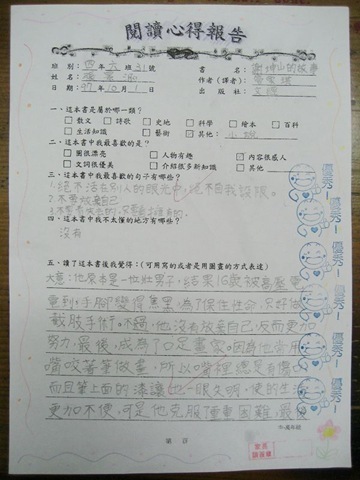 閱讀心得報告
班別：四年六班31號
書名：謝坤山的故事
姓名：
作者（譯者）：
日期：97年10月1日
出版社：文經
一、這本書是屬於哪一類？
□散文 □詩歌 □史地 □科學 □繪本 □百科
□生活知識 □藝術 ☑其他：小說
二、這本書中我最喜歡的是？
□圖很漂亮 □人物有趣 ☑內容很感人
□文詞很優美 □介紹很多新知識 □其他：
三、這本書中我最喜歡的句子有哪些？
1.絕不活在別人的眼光中，絕不自我設限。
2.不要放棄自己
四、這本書中我不太懂的地方有哪些？
沒有
五、讀了這本書後我覺得：（可用寫的或者是用圖畫的方式表達）
大意：他原本是一位壯男子，結果16歲被高壓電
電到，手腳變得焦黑，為了保住性命，只好做
截肢手術。不過，他沒有放棄自己，反而更加
努力，最後，成為了口足畫家。因為他常用
嘴咬著筆做畫，所以嘴裡總是有傷
而且筆上面的漆讓他一眼失明，使的生活
更加不便，可是他克服重重困難，最後
中‧高年級
第 頁
優秀!
優秀!
優秀!
優秀!
優秀!
優秀!